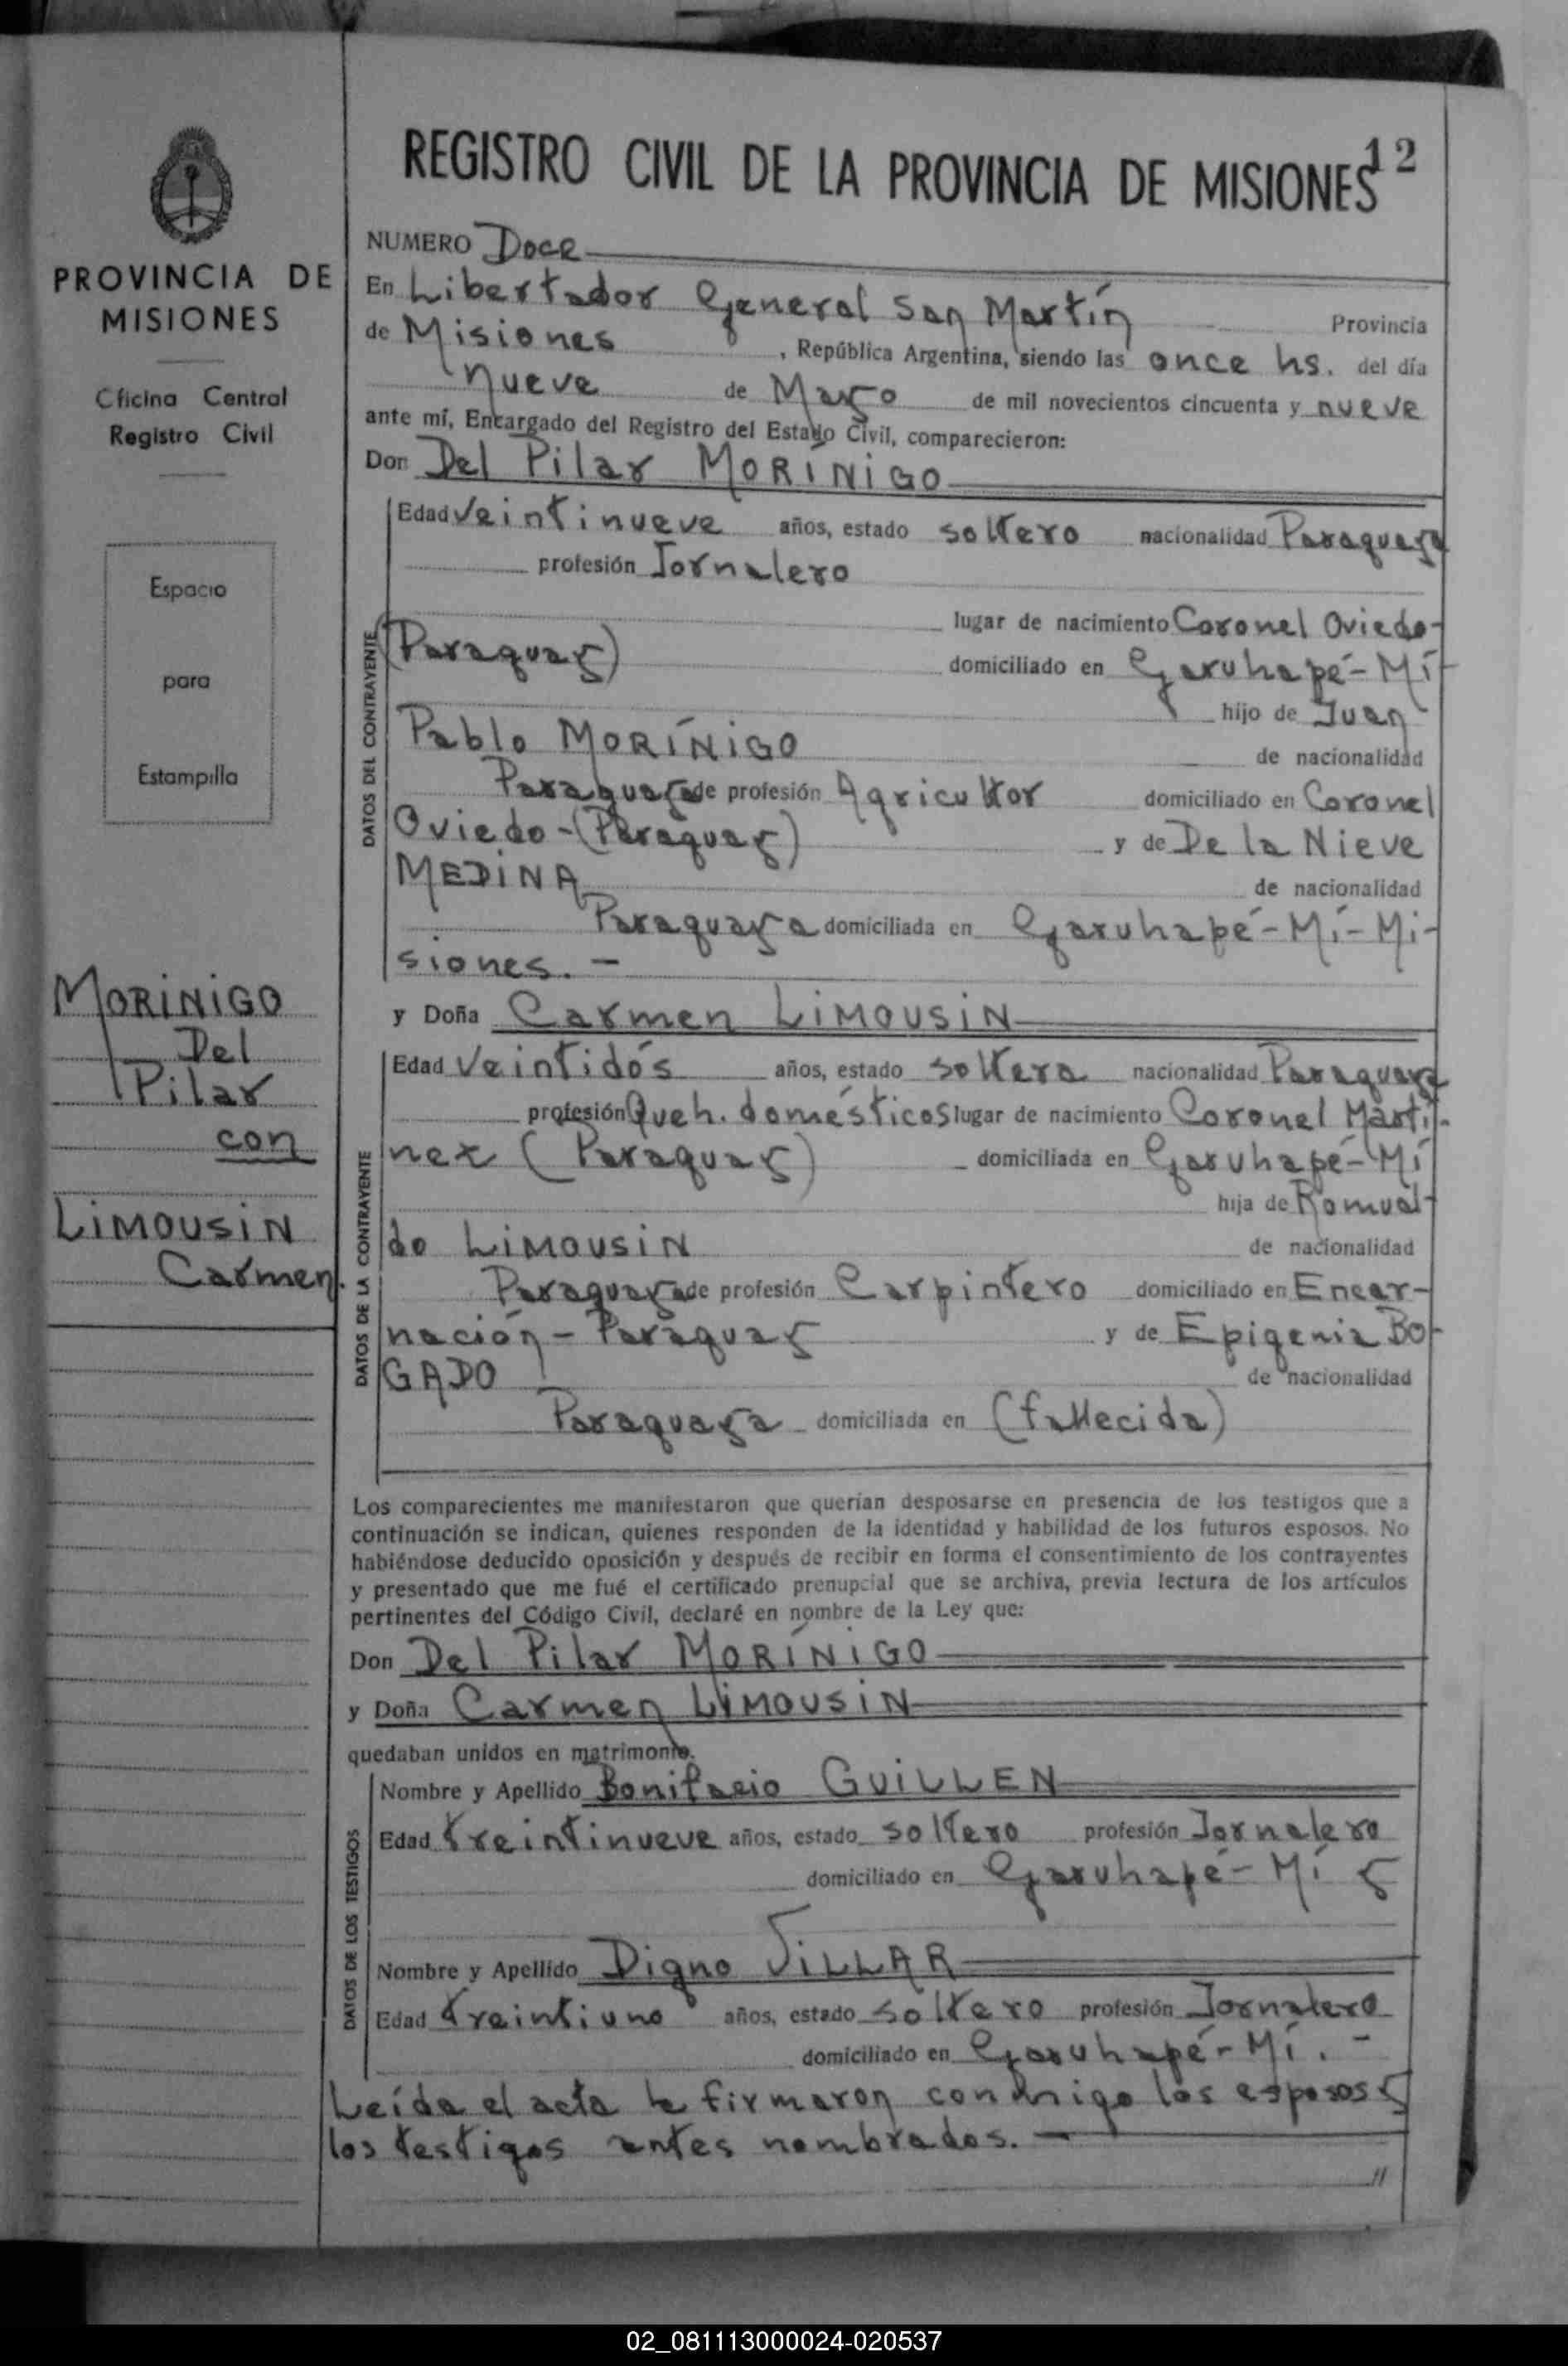 REGISTRO CIVIL DE LA PROVINCIA DE MISIONES 12
PROVINCIA DE
MISIONES
Oficina Central
Registro Civil
Espacio
para
Estampilla
MORINIGO
Del
Pilar
con
LIMOUSIN
Carmen.
NUMERO Doce
En Libertador General San Martín Provincia
de Misiones, República Argentina, siendo las once hs. del día
nueve de Marzo de mil novecientos cincuenta y nueve
ante mí, Encargado del Registro del Estado Civil, comparecieron:
Don Del Pilar MORÍNIGO
DATOS DEL CONTRAYENTE
Edad veintinueve años, estado soltero nacionalidad Paraguaya
profesión Jornalero
lugar de nacimiento Coronel Oviedo-
(Paraguay) domiciliado en Garuhapé-Mí-
hijo de Juan
Pablo MORÍNIGO de nacionalidad
Paraguaya de profesión Agricultor domiciliado en Coronel
Oviedo-(Paraguay) y de De la Nieve
MEDINA de nacionalidad
Paraguaya domiciliada en Garuhapé-Mí-Mi-
siones.-
y Doña Carmen LIMOUSIN
DATOS DE LA CONTRAYENTE
Edad Veintidós años, estado soltera nacionalidad Paraguaya
profesión Queh. domésticos lugar de nacimiento Coronel Martí-
nez (Paraguay) domiciliada en Garuhapé-Mí
hija de Romual-
do LIMOUSIN de nacionalidad
Paraguaya de profesión Carpintero domiciliado en Encar-
nación-Paraguay y de Epigenia BO-
GADO de nacionalidad
Paraguaya domiciliada en (fallecida)
Los comparecientes me manifestaron que querían desposarse en presencia de los testigos que a
continuación se indican, quienes responden de la identidad y habilidad de los futuros esposos. No
habiéndose deducido oposición y después de recibir en forma el consentimiento de los contrayentes
y presentado que me fué el certificado prenupcial que se archiva, previa lectura de los artículos
pertinentes del Código Civil, declaré en nombre de la Ley que:
Don Del Pilar MORÍNIGO
y Doña Carmen LIMOUSIN
quedaban unidos en matrimonio.
DATOS DE LOS TESTIGOS
Nombre y Apellido Bonifacio GUILLEN
Edad treintinueve años, estado soltero profesión Jornalero
domiciliado en Garuhapé-Mí y
Nombre y Apellido Digno VILLAR
Edad treintiuno años, estado soltero profesión Jornalero
domiciliado en Garuhapé-Mí.-
Leída el acta la firmaron conmigo los esposos y
los testigos antes nombrados.-
//
02_081113000024-020537